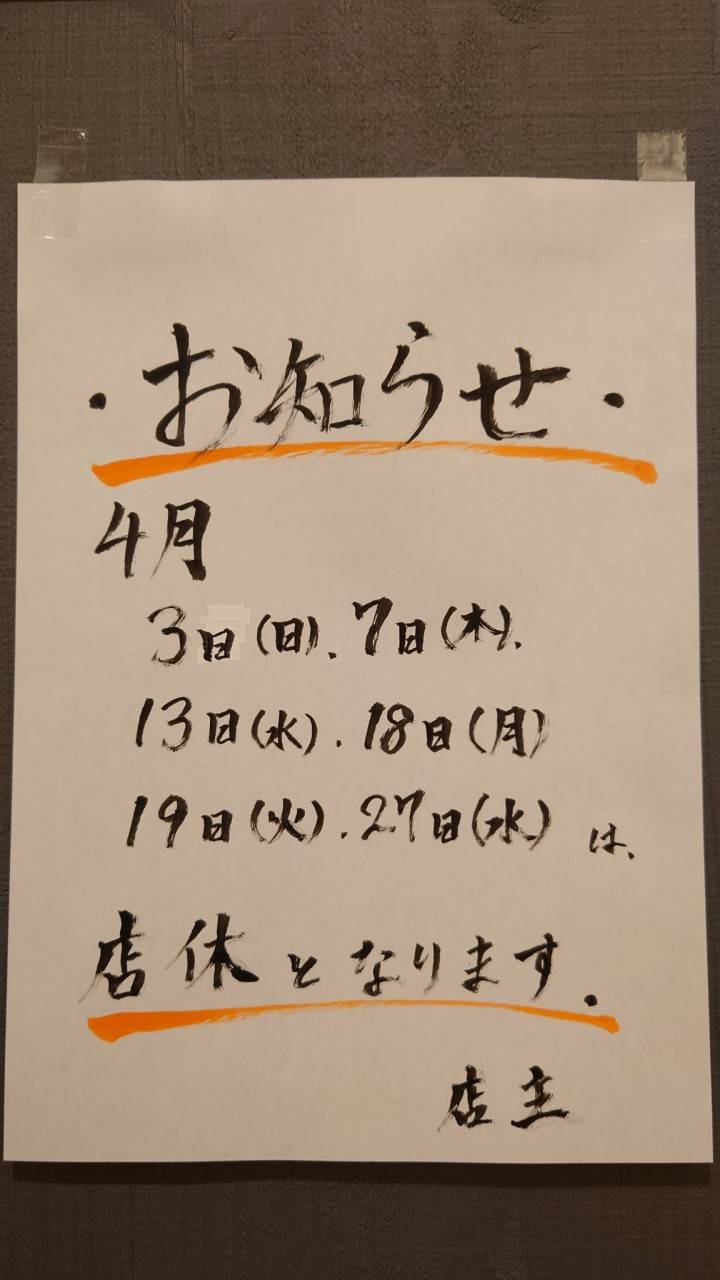 ・お知らせ・
4月
3日(日)、7日(木)、
13日(水)、18日(月)
19日(火)、27日(水)は、
店休となります。
店主